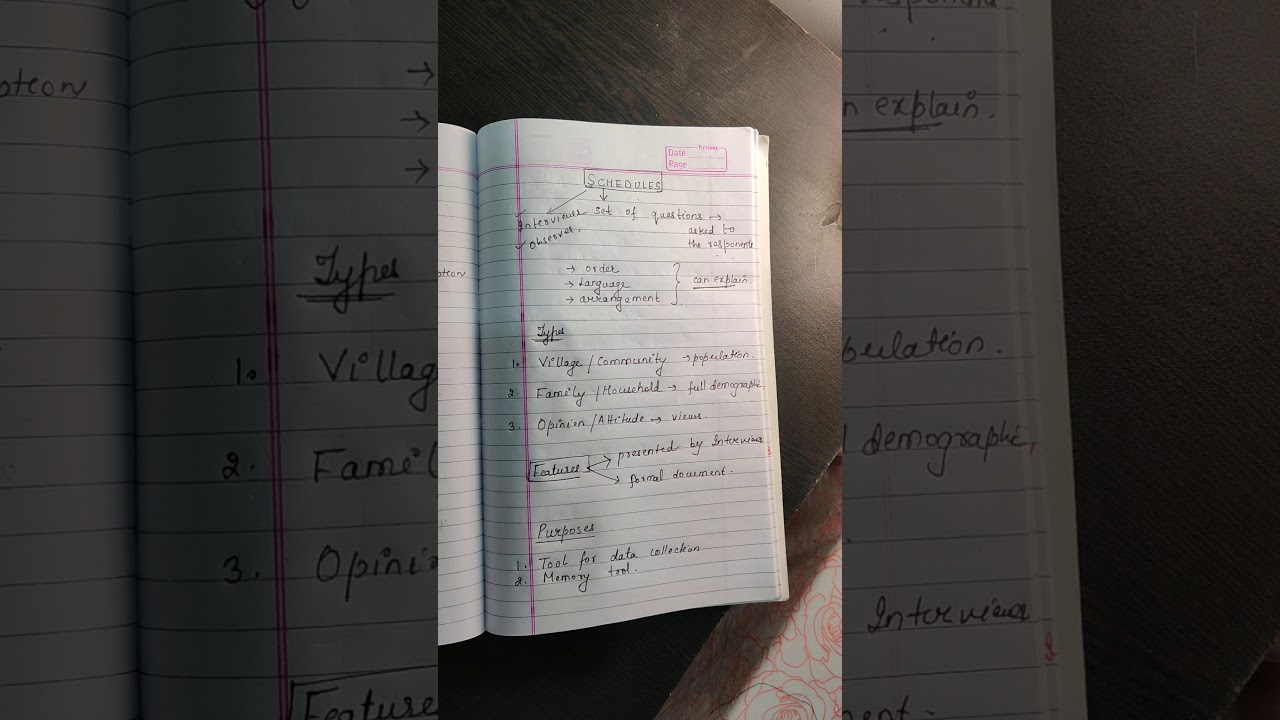 Date
Page
SCHEDULES
Interviewer set of questions →
Observer.
asked to
the respondents
→ order
→ Language
→ arrangement
can explain.
Types
1. Village / Community → population.
2. Family / Household → full demographic,
3. Opinion / Attitude → views.
Features
→ presented by Interviewer
→ formal document.
Purposes
1. Tool for data collection
2. Memory tool.